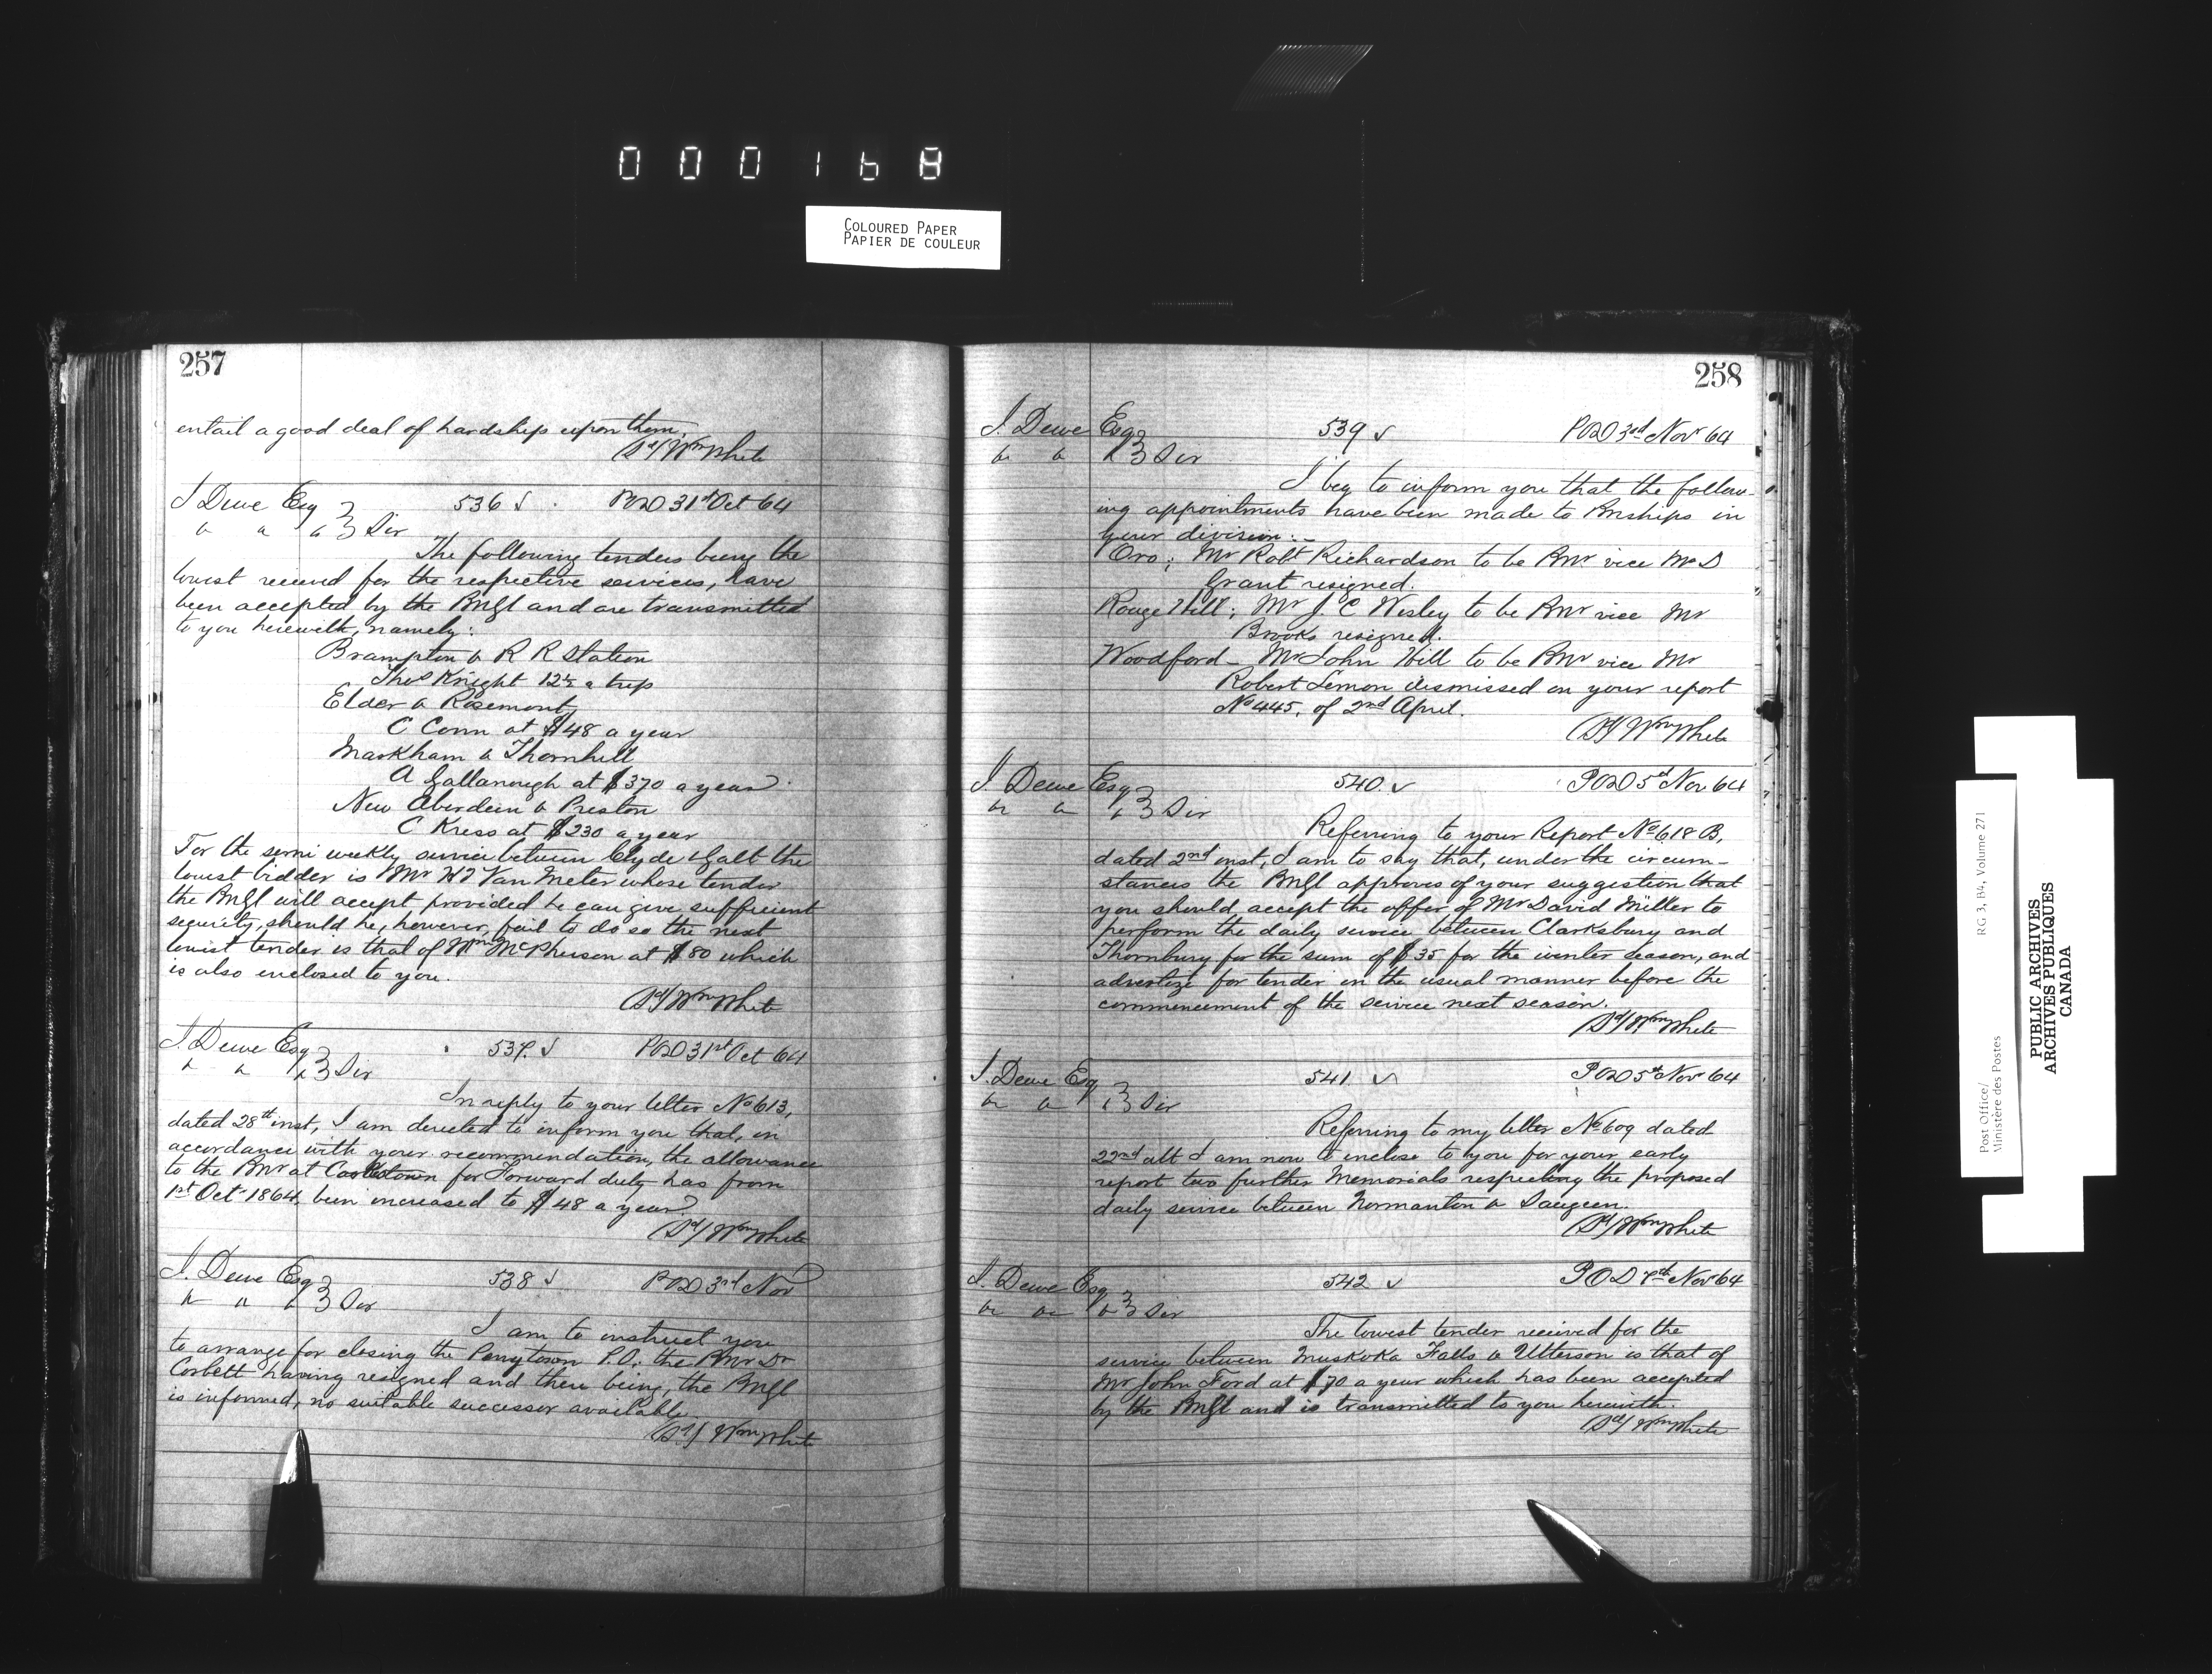 000168
COLOURED PAPER
PAPIER DE COULEUR
257
entail a good deal of hardship upon them,
Sd/ Wm White
J Dewe Esq 536 POD 31st Oct 64
Sir
The following tenders being the
lowest received for the respective services, have
been accepted by the PMGl and are transmitted
to you herewith, namely:
Brampton & R R Station
Thos Knight 12½ a trip
Elder & Rosemont
C Conn at $48 a year
Markham & Thornhill
A Gallanough at $370 a year
New Aberdeen & Preston
C Kress at $230 a year
For the semi weekly service between Clyde & Galt the
lowest bidder is Mr Van Meter whose tender
the PMGl will accept provided he can give sufficient
security, should he, however, fail to do so the next
lowest tender is that of Wm McPherson at $80 which
is also enclosed to you.
Sd/ Wm White
J. Dewe Esq 537 POD 31st Oct 64
Sir
In reply to your letter No 613,
dated 28th inst, I am directed to inform you that, in
accordance with your recommendation, the allowance
to the PMr at for Forward duty has from
1st Oct 1864, been increased to $48 a year
Sd/ Wm White
J. Dewe Esq 538 POD 3rd Nov
Sir
I am to instruct you
to arrange for closing the Perrytown P.O. the PMr Dr
Corbett having resigned and there being, the PMGl
is informed, no suitable successor available
Sd/ Wm White
258
J. Dewe Esq 539 POD 3rd Nov 64
Sir
I beg to inform you that the follow-
ing appointments have been made to PMships in
your division:-
Oro; Mr Robt Richardson to be PMr vice Mr D
Grant resigned.
Rouge Hill; Mr J. C Wesley to be PMr vice Mr
Brooks resigned.
Woodford - Mr John Hill to be PMr vice Mr
Robert Lemon dismissed on your report
No 445, of 2nd April.
Sd/ Wm White
J Dewe Esq 540. POD 5th Nov 64
Sir
Referring to your Report No 618 B,
dated 2nd inst, I am to say that, under the circum-
stances the PMGl approves of your suggestion that
you should accept the offer of Mr David Miller to
perform the daily service between Clarksbury and
Thornbury for the sum of $35 for the winter season, and
advertize for tender in the usual manner before the
commencement of the service next season.
Sd/ Wm White
J. Dewe Esq 541 POD 5th Nov 64
Sir
Referring to my letter No 609 dated
22nd ult I am now to enclose to you for your early
report two further Memorials respecting the proposed
daily service between Normanton & Saugeen.
Sd/ Wm White
J. Dewe Esq 542 POD 7th Nov 64
Sir
The lowest tender received for the
service between Muskoka Falls & Utterson is that of
Mr John Ford at $70 a year which has been accepted
by the PMGl and is transmitted to you herewith.
Sd/ Wm White
Post Office/
Ministère des Postes
RG 3, B4, Volume 271
PUBLIC ARCHIVES
ARCHIVES PUBLIQUES
CANADA